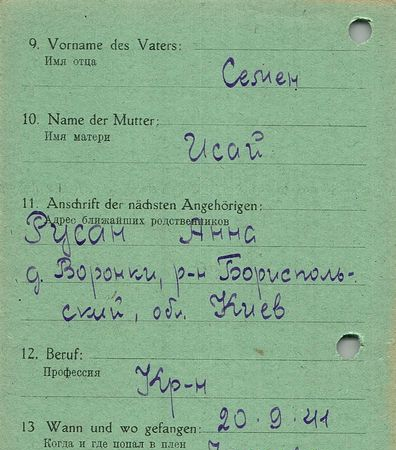 9. Vorname des Vaters:
Имя отца
Семен
10. Name der Mutter:
Имя матери
Исай
11. Anschrift der nächsten Angehörigen:
Адрес ближайших родственников
Русан Анна
д. Воронки, р-н Борисполь-
ский, обл. Киев
12. Beruf:
Профессия
Кр-н
13 Wann und wo gefangen: 20.9.41
Когда и где попал в плен